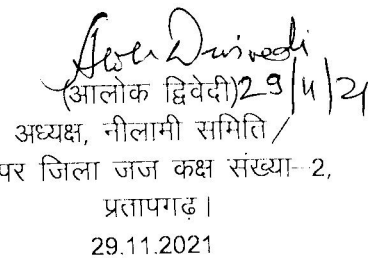 Alok Dwivedi
(आलोक द्विवेदी) 29/11/21
अध्यक्ष, नीलामी समिति /
पर जिला जज कक्ष संख्या--2,
प्रतापगढ़।
29.11.2021